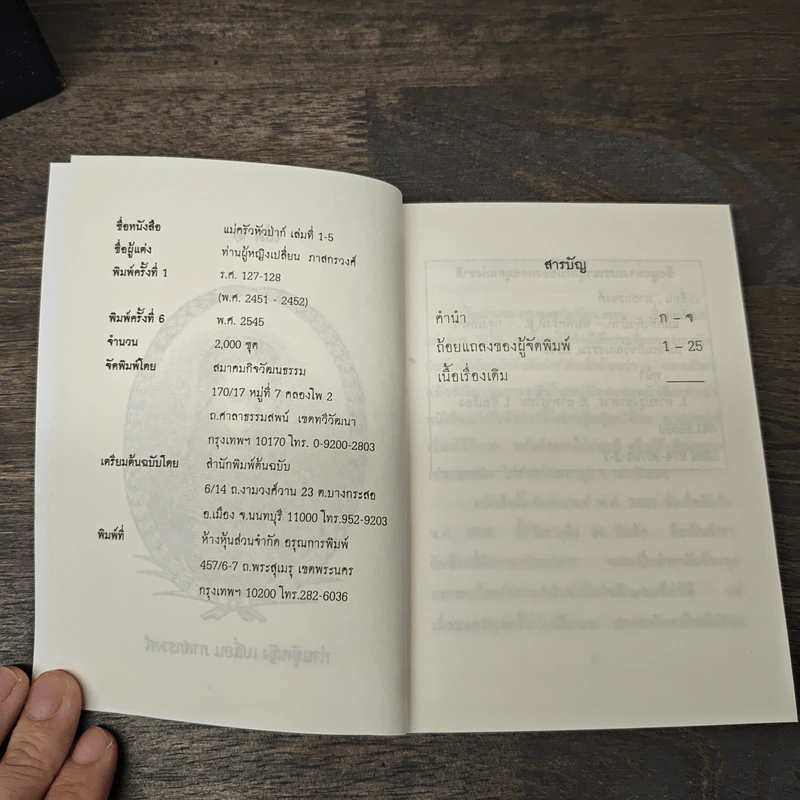 ชื่อหนังสือ แม่ครัวหัวป่าก์ เล่มที่ 1-5
ชื่อผู้แต่ง ท่านผู้หญิงเปลี่ยน ภาสกรวงศ์
พิมพ์ครั้งที่ 1 ร.ศ. 127-128
(พ.ศ. 2451 - 2452)
พิมพ์ครั้งที่ 6 พ.ศ. 2545
จำนวน 2,000 ชุด
จัดพิมพ์โดย สมาคมกิจวัฒนธรรม
170/17 หมู่ที่ 7 คลองไพ 2
ถ.ศาลาธรรมสพน์ เขตทวีวัฒนา
กรุงเทพฯ 10170 โทร. 0-9200-2803
เตรียมต้นฉบับโดย สำนักพิมพ์ต้นฉบับ
6/14 ถ.งามวงศ์วาน 23 ต.บางกระสอ
อ.เมือง จ.นนทบุรี 11000 โทร.952-9203
พิมพ์ที่ ห้างหุ้นส่วนจำกัด อรุณการพิมพ์
457/6-7 ถ.พระสุเมรุ เขตพระนคร
กรุงเทพฯ 10200 โทร.282-6036
สารบัญ
คำนำ ก - จ
ถ้อยแถลงของผู้จัดพิมพ์ 1 - 25
เนื้อเรื่องเดิม